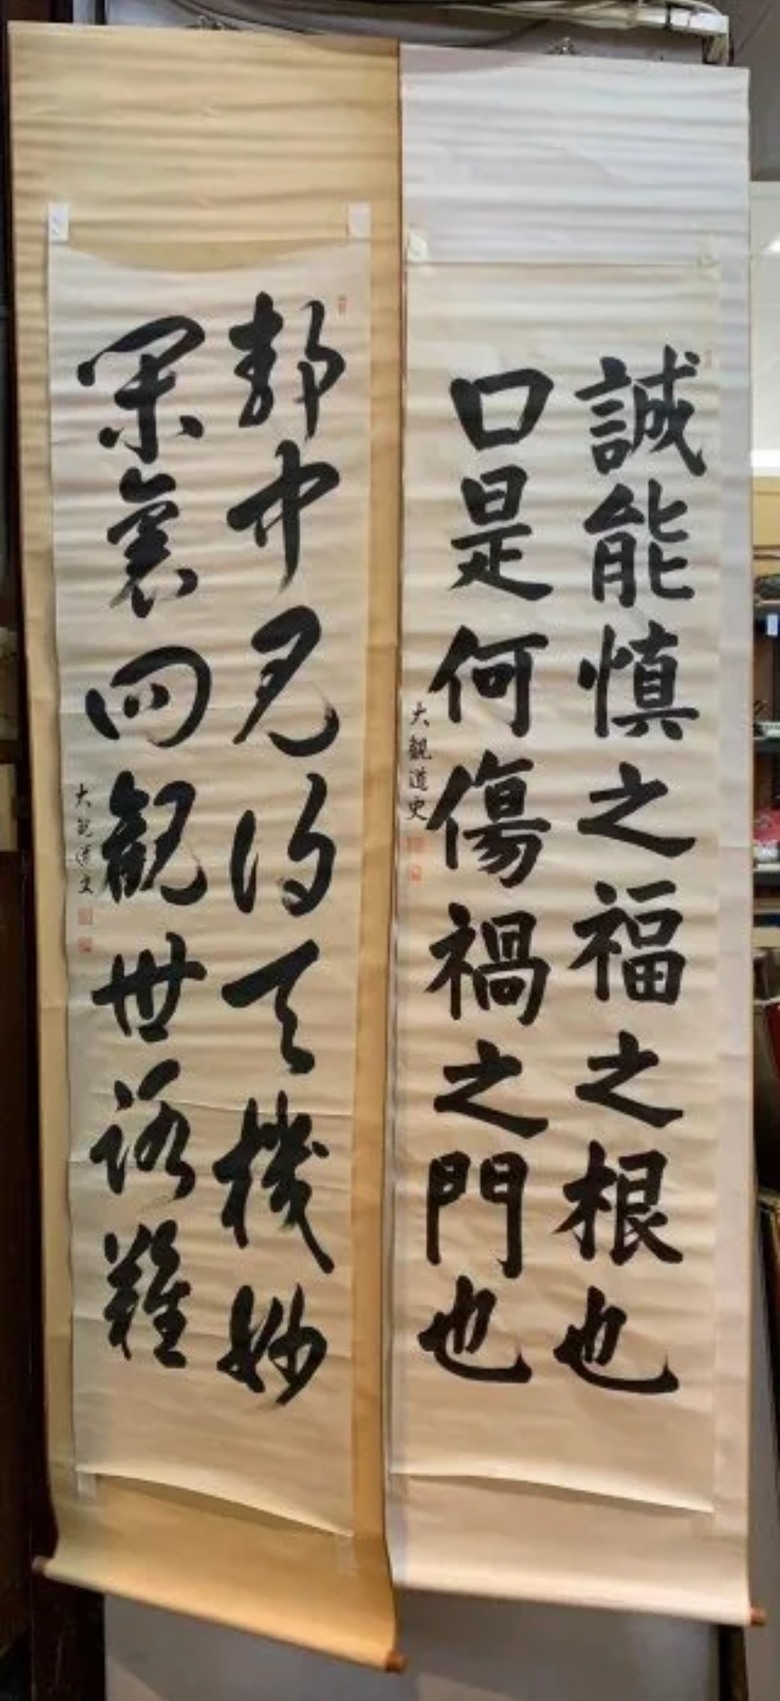 誠能慎之福之根也
口是何傷禍之門也
大觀道史
靜中見得天機妙
閑裏回觀世路難
大觀道史